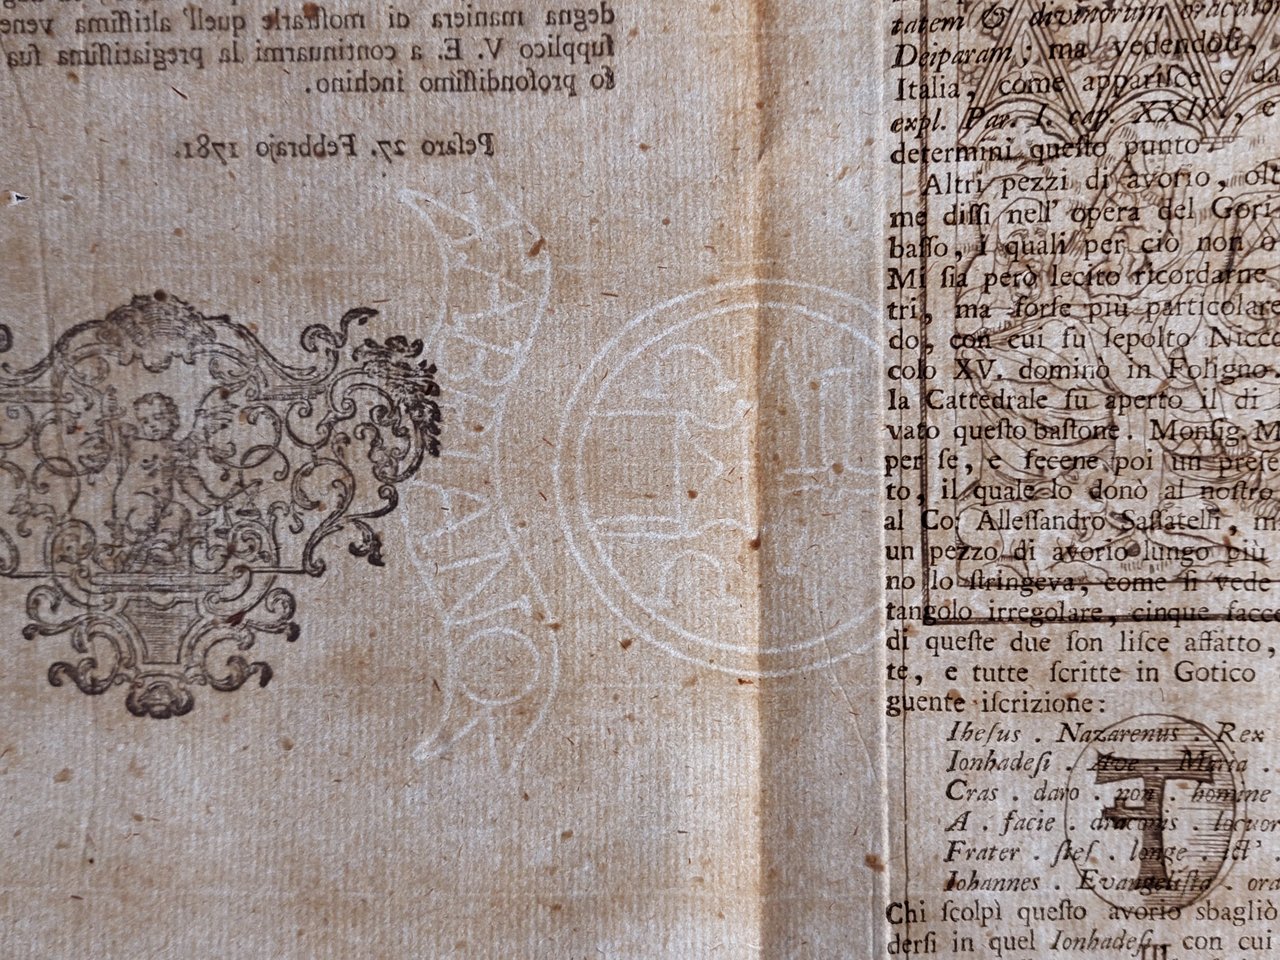 degna maniera di mostrarle quell' altissima vene
supplico V. E. a continuarmi la pregiatissima sua
so profondissimo inchino.
Pesaro 27. Febbrajo 1781.
tatem & divinorum oraculor
Deiparam; ma vedendosi,
Italia, come apparisce e da
expl. Par. I. cap. XXIV, e
determini questo punto
Altri pezzi di avorio, olt
me dissi nell' opera del Gori
basso, i quali per ciò non o
Mi sia però lecito ricordarne
tri, ma forse più particolare
do, con cui fu sepolto Nicco
colo XV. dominò in Foligno.
la Cattedrale fu aperto il di
vato questo bastone. Monsig. M
per se, e fecene poi un prese
to, il quale lo donò al nostro
al Co: Allessandro Sassatelli, m
un pezzo di avorio lungo più
no lo stringeva, come si vede
tangolo irregolare, cinque facce
di queste due son lisce affatto,
te, e tutte scritte in Gotico
guente iscrizione:
Ihesus . Nazarenus . Rex
Ionhadesi . Ave . Maria .
Cras . daro . non . homine
A . facie . draconis . locuor
Frater . stes . longe . ict' .
Iohannes . Evangelista . ora
Chi scolpì questo avorio sbagliò
dersi in quel Ionhadesi, con cui